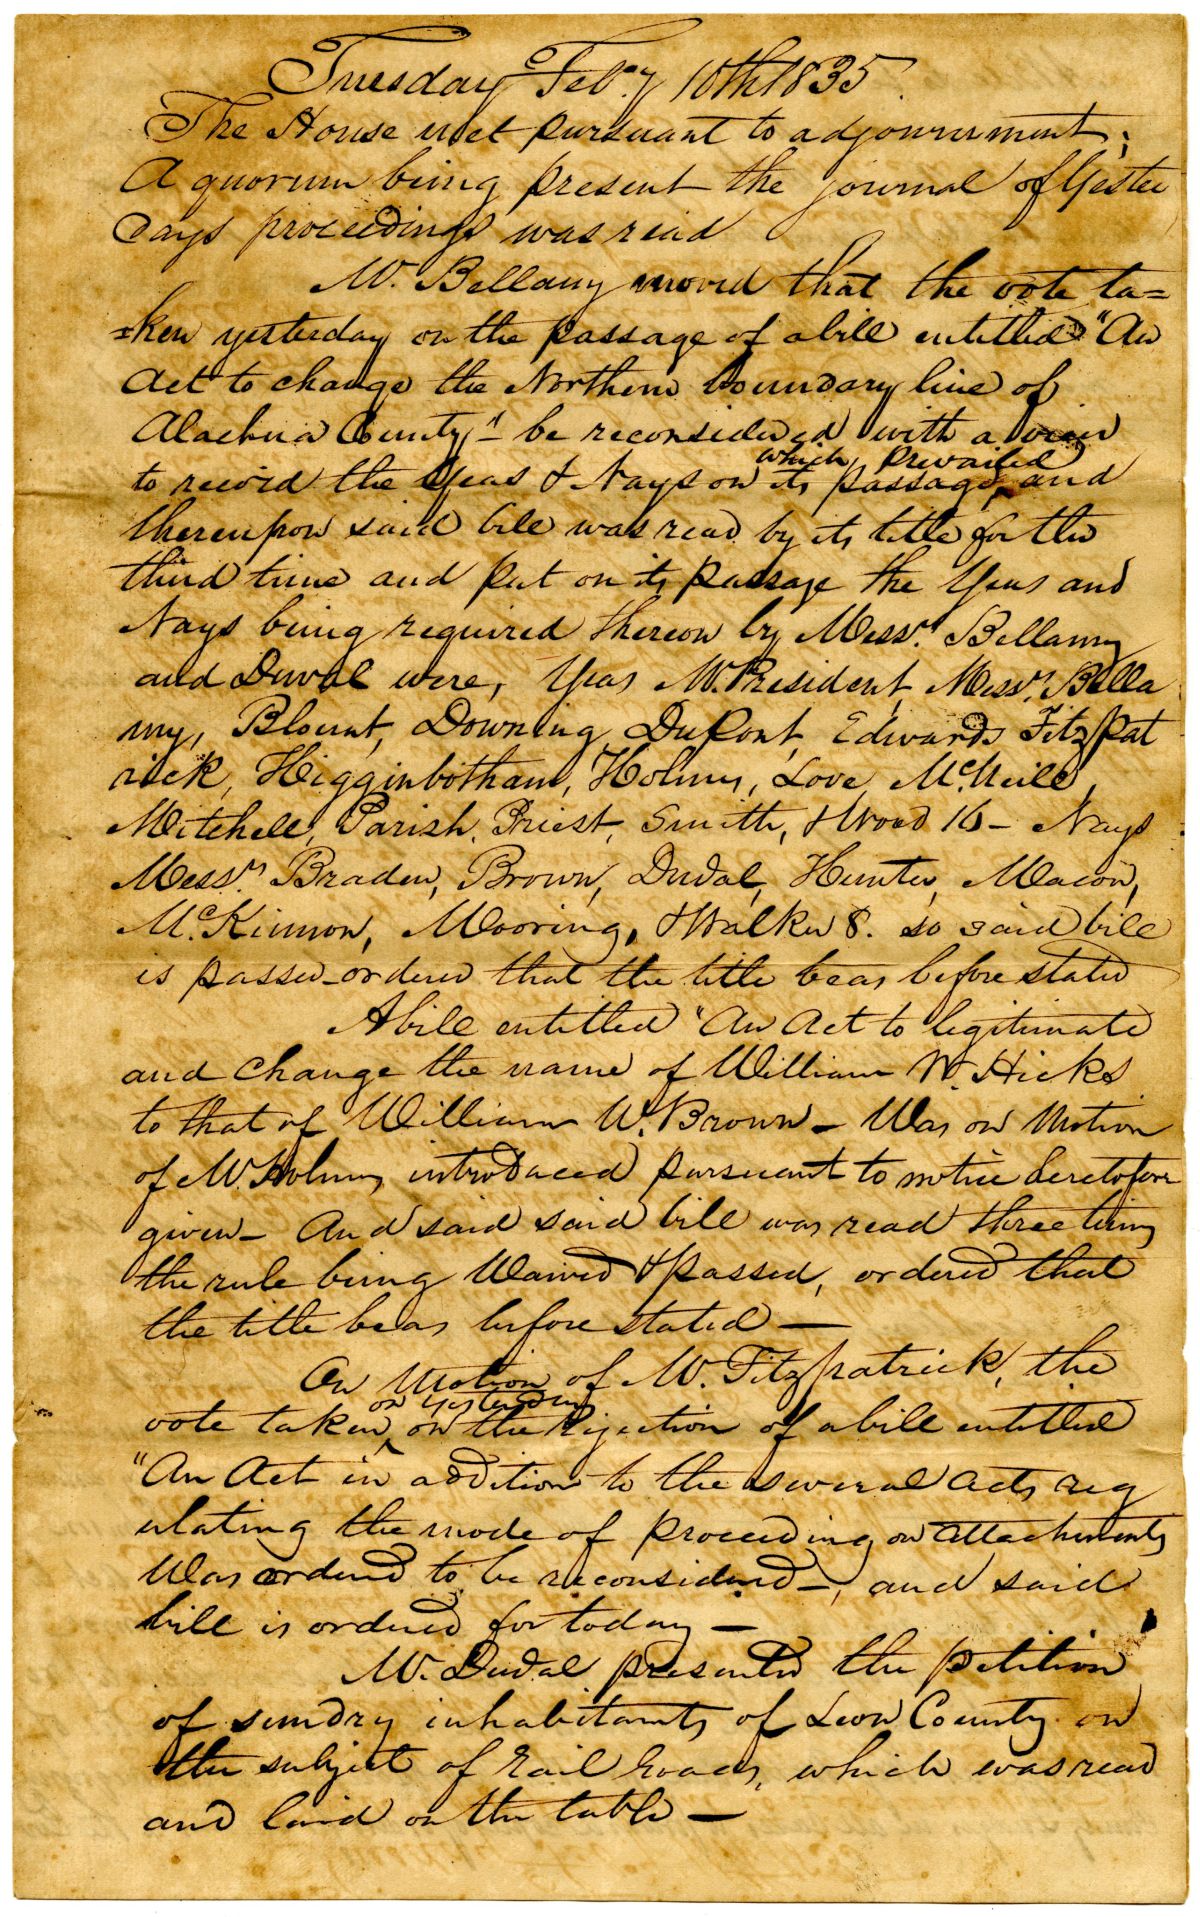 Tuesday Feb.y 10th 1835
The House met pursuant to adjournment;
A quorum being present the journal of Yester
days proceedings was read
Mr. Bellamy moved that the vote ta=
=ken yesterday on the passage of a bill entitled "An
Act to change the Northern boundary line of
Alachua County" - be reconsidered with a view
which prevailed
to record the Yeas & Nays on its passage ‸ and
thereupon said bill was read by its title for the
third time and put on its passage the Yeas and
Nays being required thereon by Messrs. Bellamy
and Duval were, Yeas Mr. President, Messrs. Bella
my, Blount, Downing, DuPont, Edwards Fitzpat
rick, Higginbotham, Holmes, Love, McNeill,
Mitchell, Parish, Priest, Smith, & Wood 16 - Nays
Messrs. Braden, Brown, Duval, Hunter, Macon,
McKinnon, Mooring, & Walker 8. so said bill
is passed - ordered that the title be as before stated
A bill entitled "An Act to legitimate
and change the name of William W. Hicks
to that of William W. Brown - Was on Motion
of Mr. Holmes introduced pursuant to notice heretofore
given - And said said bill was read three times
the rule being Waived & passed, ordered that
the title be as before stated —
On Motion of Mr. Fitzpatrick, the
on yesterday
vote taken ‸ on the rejection of a bill entitled
"An Act in addition to the several acts reg
ulating the mode of proceeding on attachments
Was ordered to be reconsidered -, and said
bill is ordered for today —
Mr. Duval presented the petition
of sundry inhabitants of Leon County on
the subject of Rail Roads, which was read
and laid on the table —